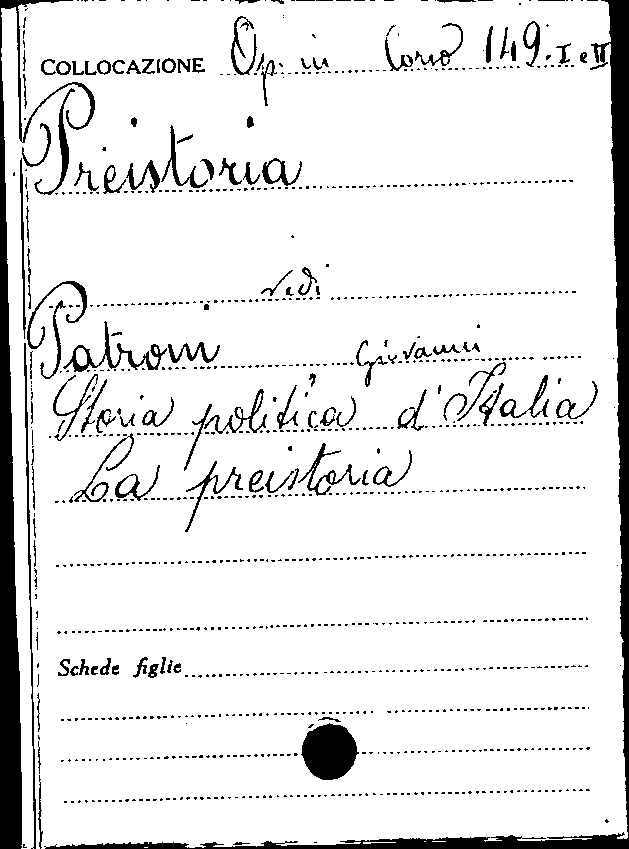 COLLOCAZIONE Op. in Corso 149. I e II
Preistoria
vedi
Patroni Giovanni
Storia politica d'Italia
La preistoria
Schede figlie